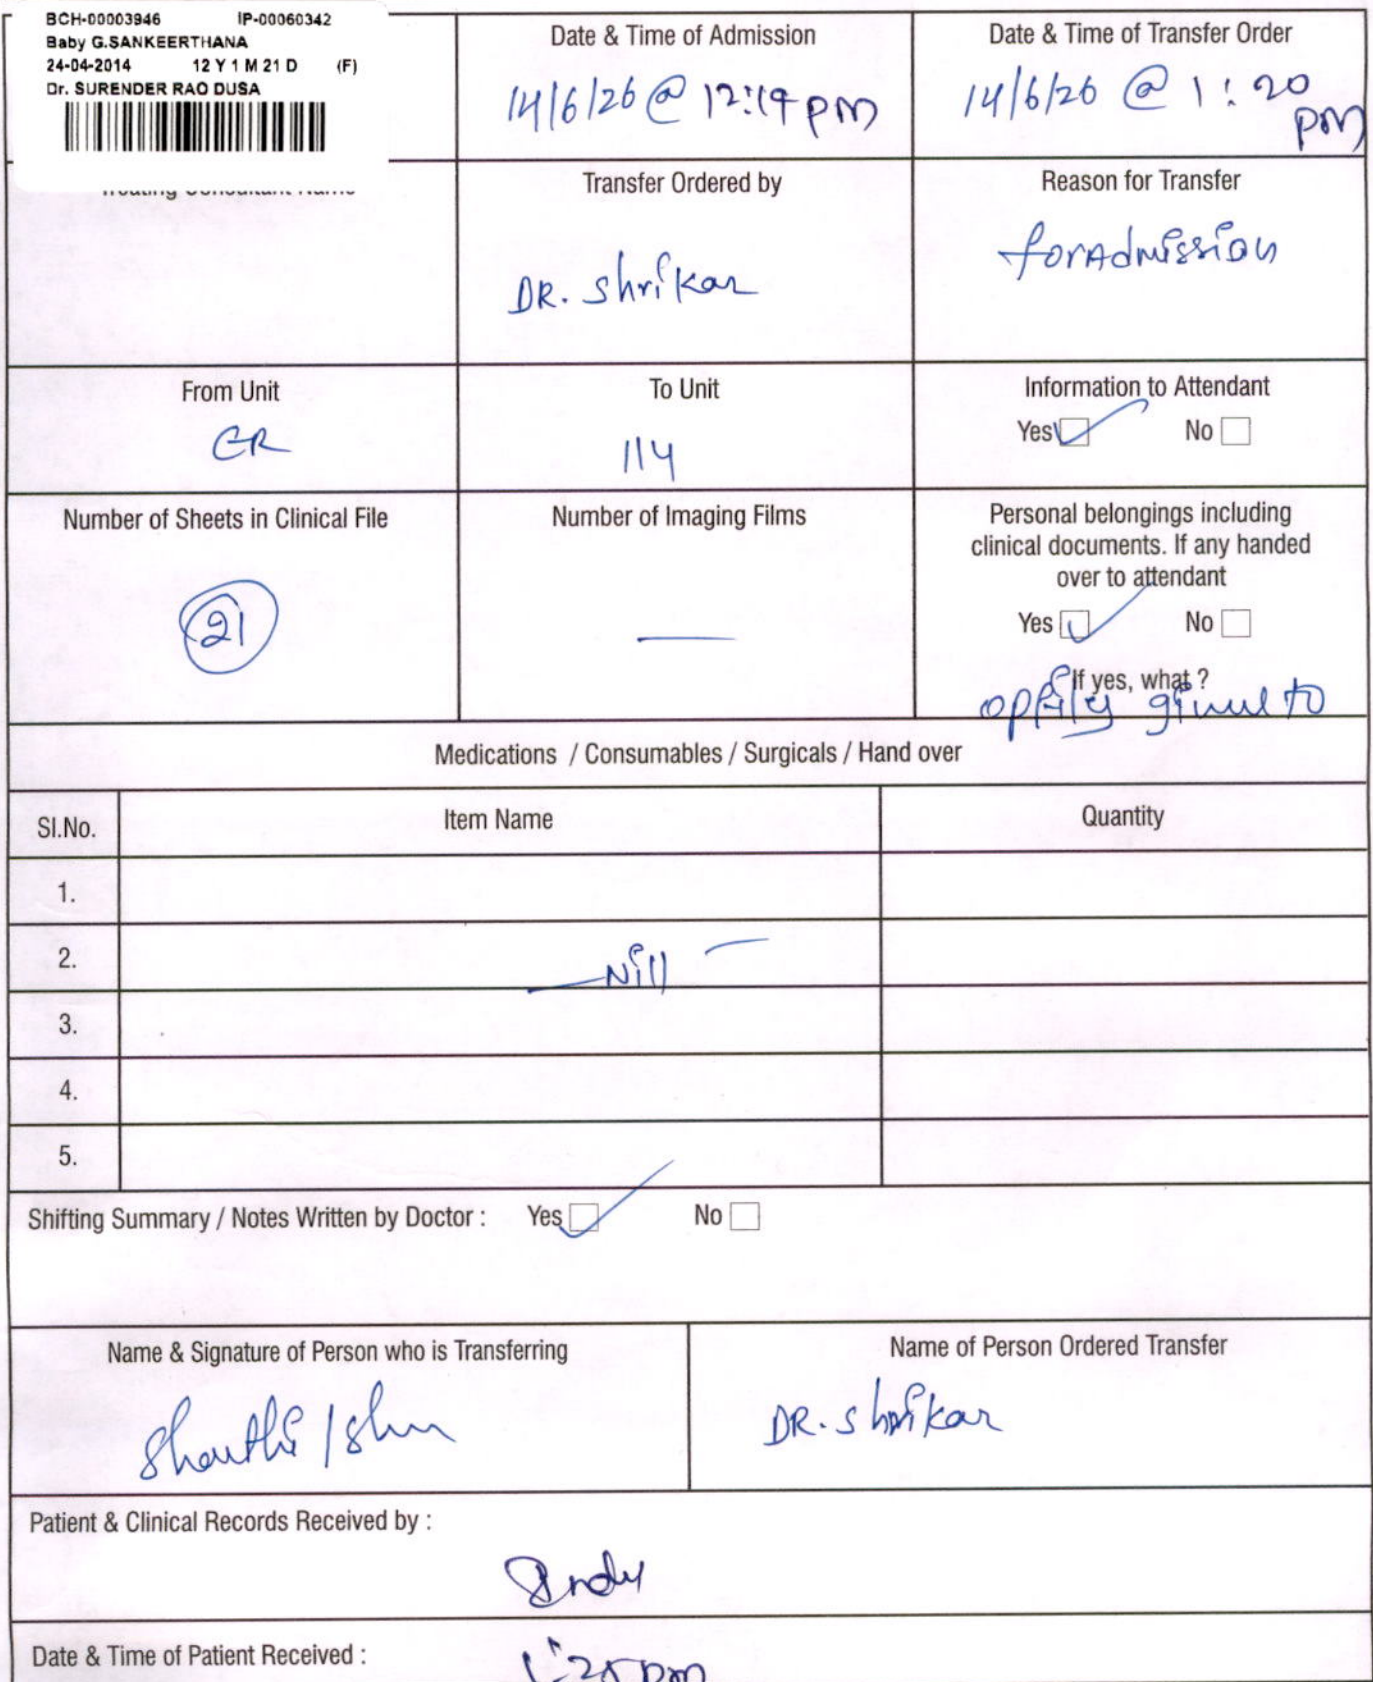 BCH-00003946 IP-00060342
Baby G.SANKEERTHANA
24-04-2014 12 Y 1 M 21 D (F)
Dr. SURENDER RAO DUSA
Date & Time of Admission
14/6/26 @ 12:19 pm
Date & Time of Transfer Order
14/6/26 @ 1:20
pm
Treating Consultant Name
Transfer Ordered by
DR. Shrikar
Reason for Transfer
for Admission
From Unit
ER
To Unit
114
Information to Attendant
Yes No
Number of Sheets in Clinical File
21
Number of Imaging Films
Personal belongings including
clinical documents. If any handed
over to attendant
Yes No
If yes, what ?
to
Medications / Consumables / Surgicals / Hand over
Sl.No. Item Name Quantity
1.
2. Nill
3.
4.
5.
Shifting Summary / Notes Written by Doctor : Yes No
Name & Signature of Person who is Transferring
Shanthi
Name of Person Ordered Transfer
DR. Shrikar
Patient & Clinical Records Received by :
Date & Time of Patient Received :
pm